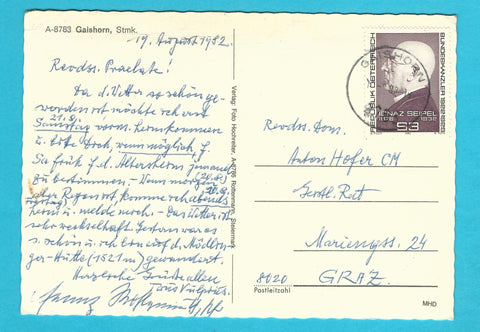 A-8783 Gaishorn, Stmk.
19. August 1982
Revdss. Praelate!
Da d. Wetter so schön ge-
worden ist möchte ich erst
21.8.
Samstag vorm. kommen
u. bitte Dich, wenn möglich, f.
Sa früh f. d. Altersheim jemand
zu bestimmen. – Wenn morgen (20.8.)
aber Regen ist komme ich abends
heim u. melde mich. – Das Wetter ist
sehr wechselhaft. Gestern war es
s. schön u. ich bin auf d. Mödlin-
ger-Hütte (1521 m) gewandert.
Herzliche Grüße allen
Verlag: Foto Hochreiter, A-8786 Rottenmann, Steiermark
GAISHORN
REPUBLIK ÖSTERREICH
BUNDESKANZLER 1922-1929
IGNAZ SEIPEL
1876 1932
S3
Revdss. Dom.
Anton Hofer CM
Geistl. Rat
Mariengss. 24
8020 GRAZ
Postleitzahl
MHD